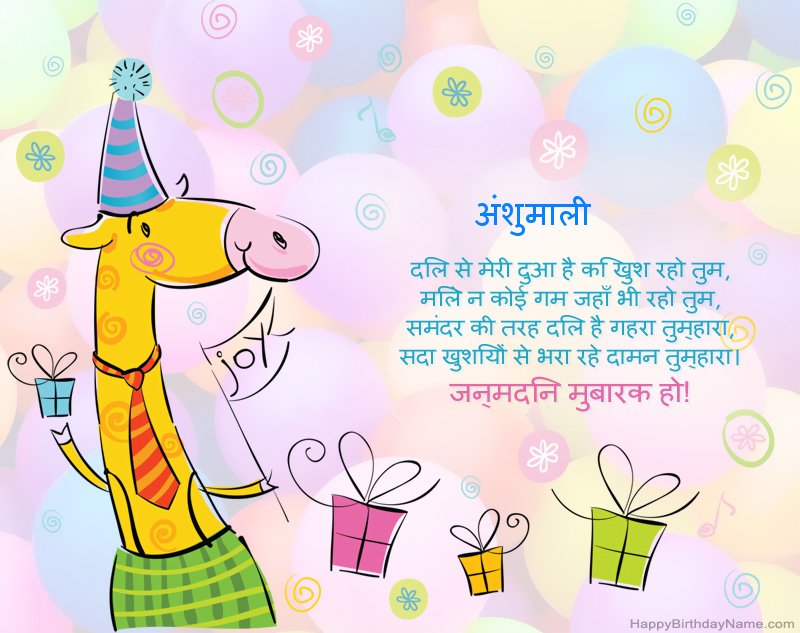 अंशुमाली
दलि से मेरी दुआ है कि खुश रहो तुम,
मलिे न कोई गम जहाँ भी रहो तुम,
समंदर की तरह दलि है गहरा तुम्हारा,
सदा खुशयिों से भरा रहे दामन तुम्हारा।
जन्मदनि मुबारक हो!
joy
HappyBirthdayName.com